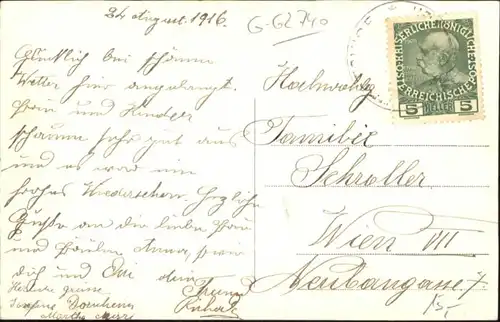 24 August 1916.
G-62740
Glücklich bei schönem
Wetter hier angelangt.
Frau und Kinder
schauen sehr gut aus
und es war ein
frohes Wiedersehen. Herzliche
Grüße an die liebe Frau
und Fräulein Anna, sowie
dich und dein
Freund
Herzliche Grüsse
Josefine
Martha
Hochwohlg.
Familie
Schroller
Wien VII
Neubaugasse 7
KAISERLICHE KÖNIGLICHE
ÖSTERREICHISCHE
5 HELLER 5